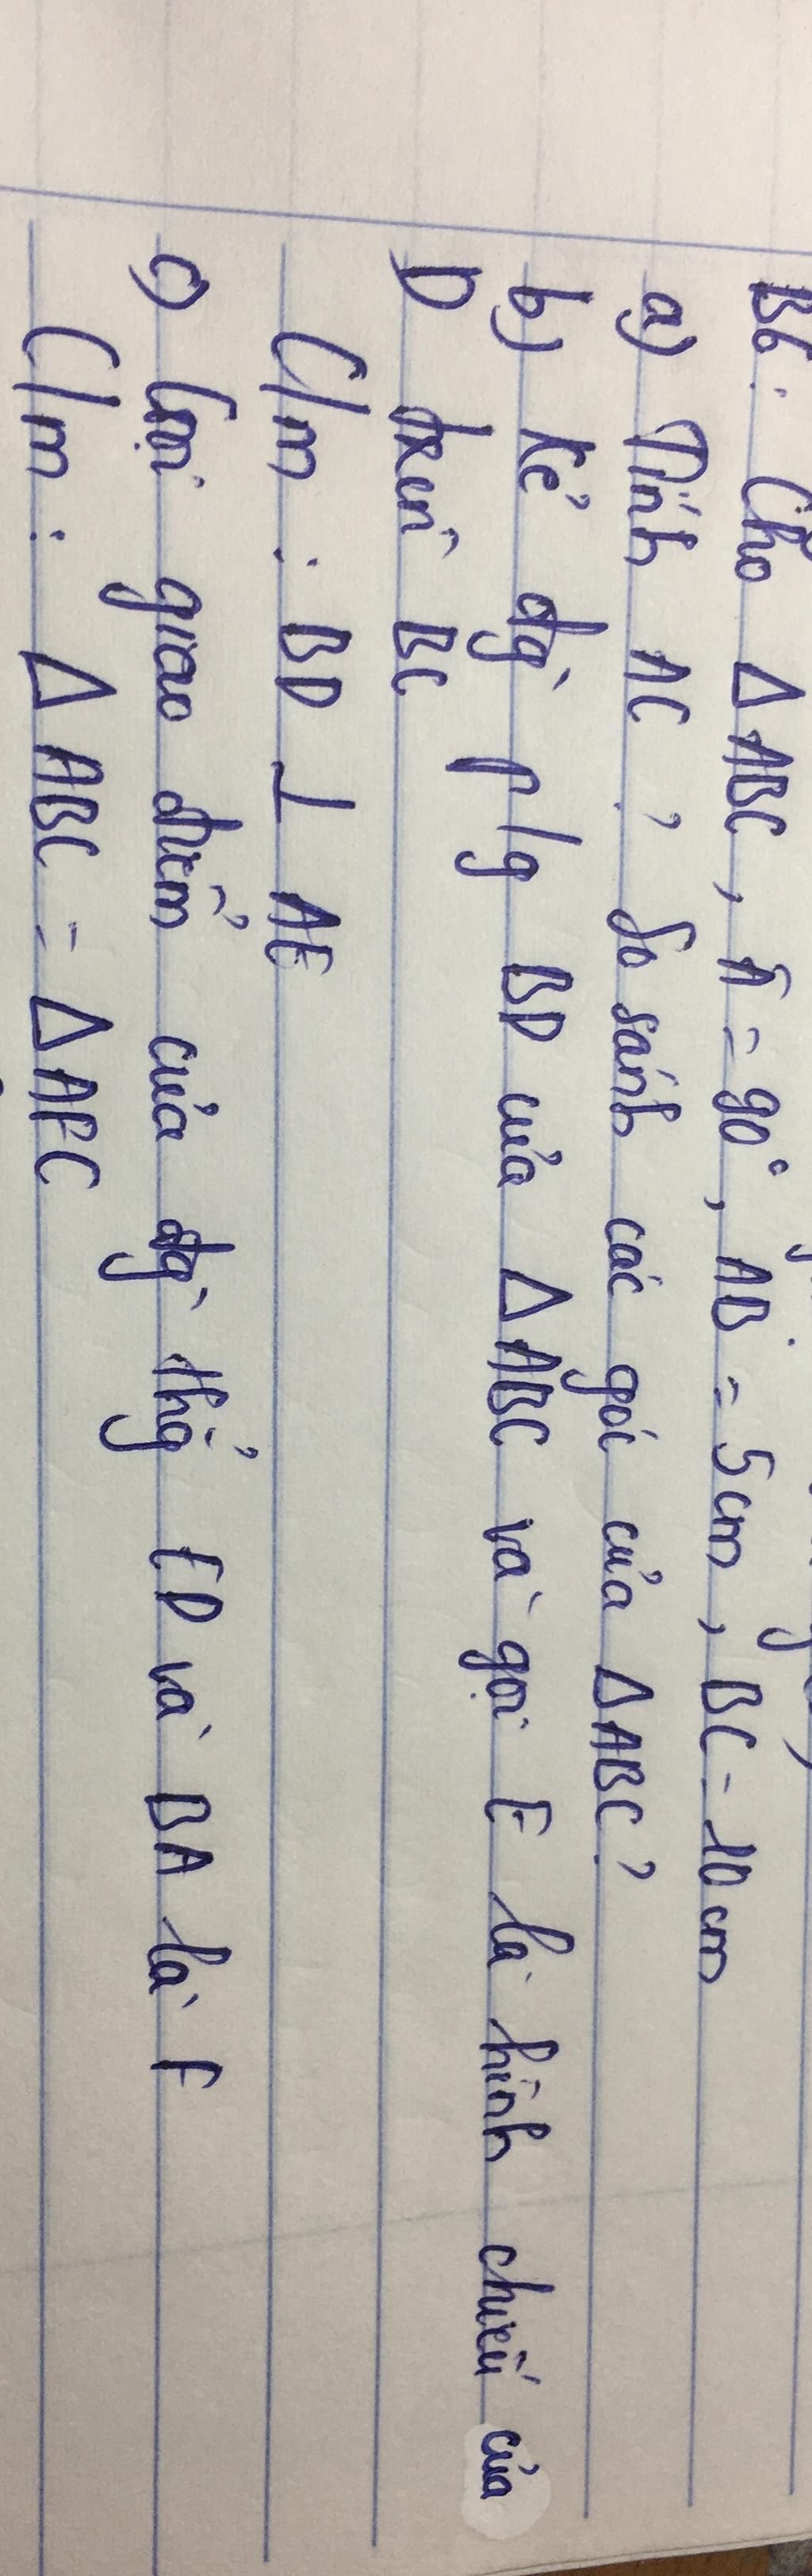 B6: Cho Δ ABC, Â = 90°, AB = 5cm, BC = 10cm
a) Tính AC? So sánh các góc của ΔABC?
b) Kẻ đg` p/g BD của ΔABC và gọi E là hình chiếu của
D trên BC
C/m: BD ⊥ AE
c) Gọi giao điểm của đg` thg̉ ED và BA là F
C/m: Δ ABC = Δ AFC